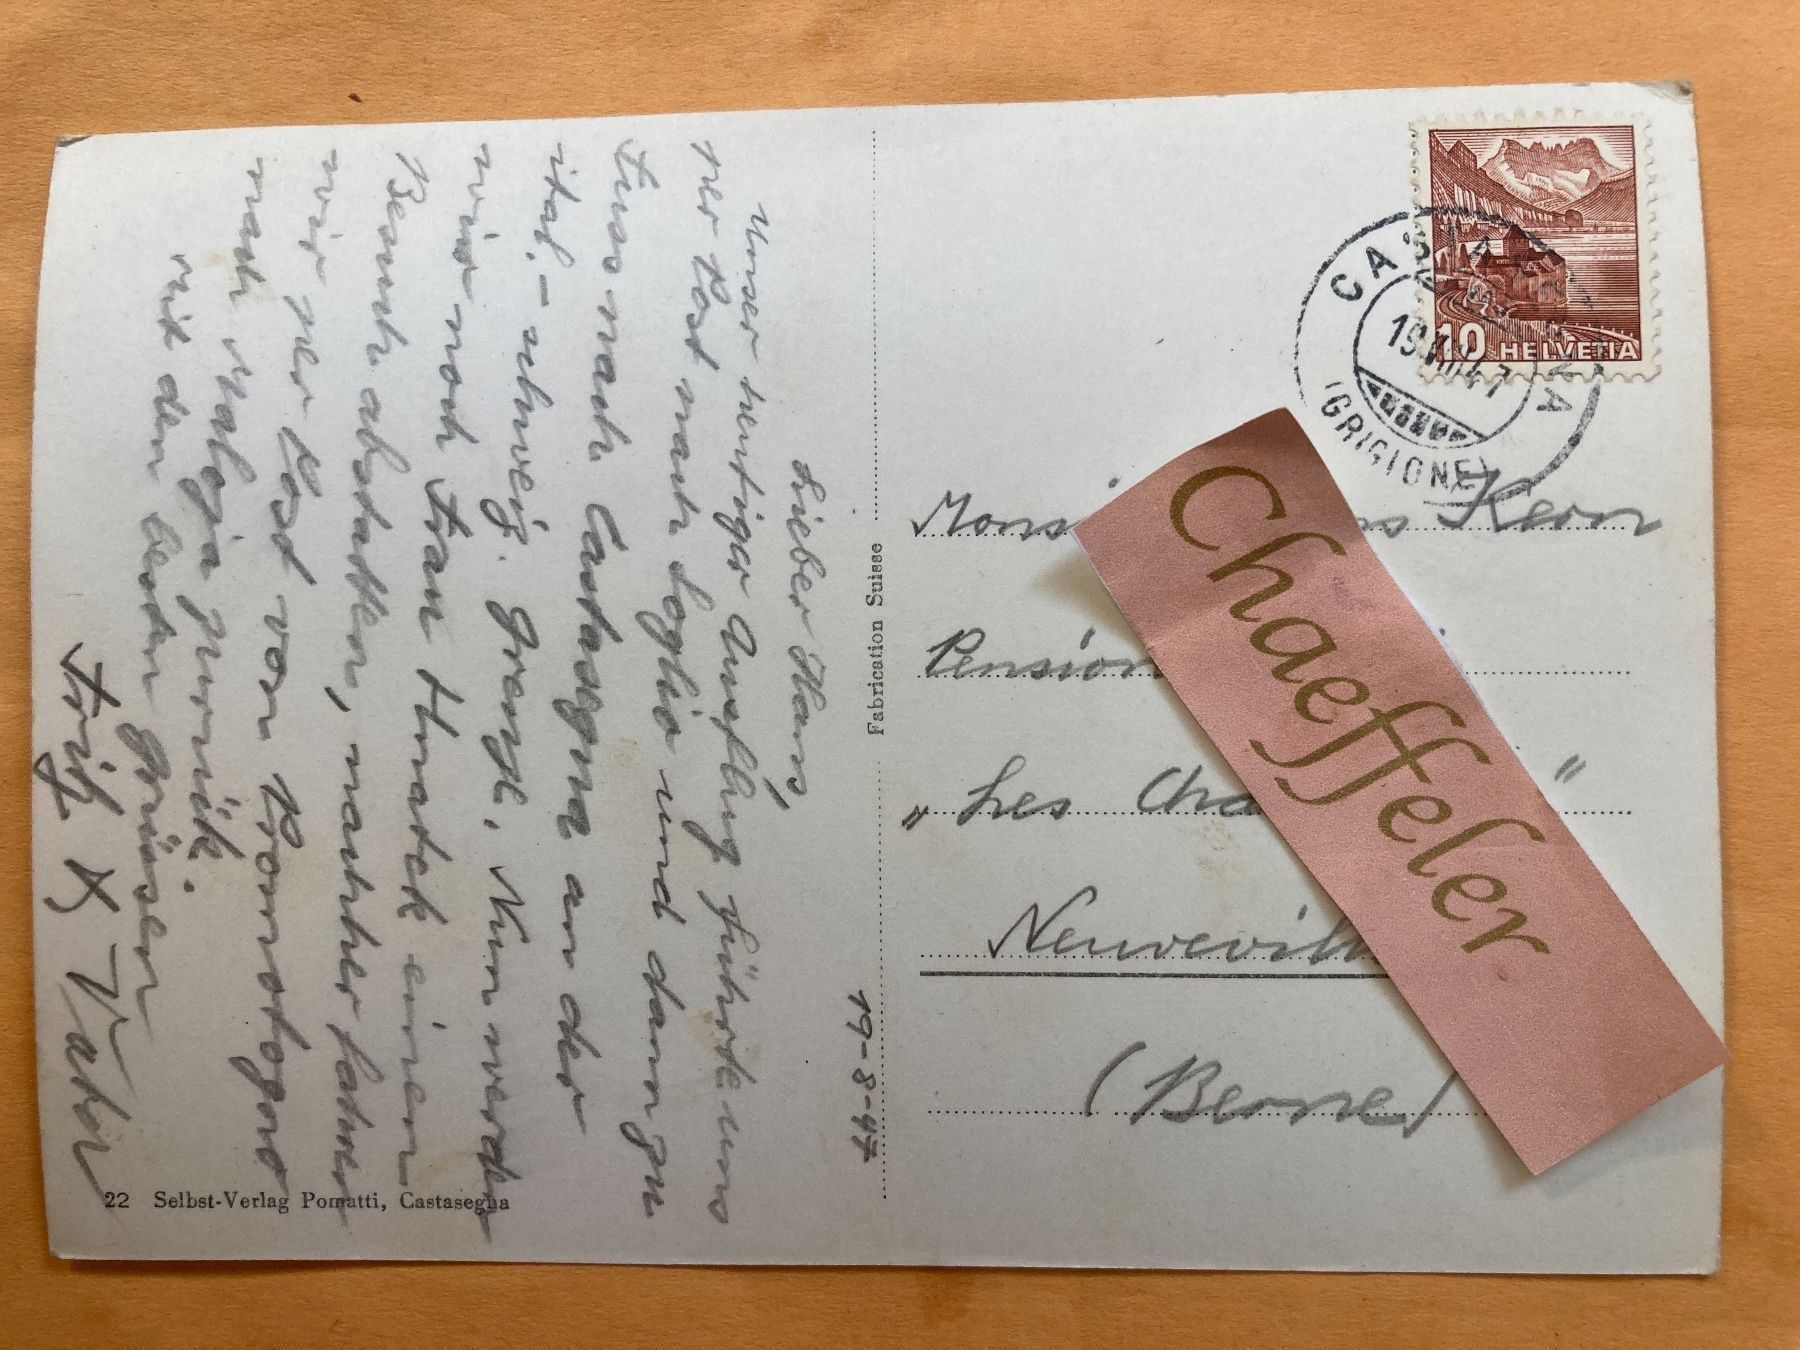 Lieber Hans,
Unser heutiger Ausflug führte uns
per Post nach Soglio und dann zu
Fuss nach Castasegna an der
ital.-schweiz. Grenze. Nun werden
wir noch Frau Huratek einen
Besuch abstatten, nachher fahren
wir per Post von Promotogno
nach Maloja zurück.
Mit den besten Grüssen
Fritz & Vater
19-8-47
22 Selbst-Verlag Pomatti, Castasegna
Fabrication Suisse
CASTASEGNA
19.VIII.47
(GRIGIONE)
10 HELVETIA
Mons s Kern
Pension
"Les Cha "
Neuvevill
(Berne)
Chaeffeler